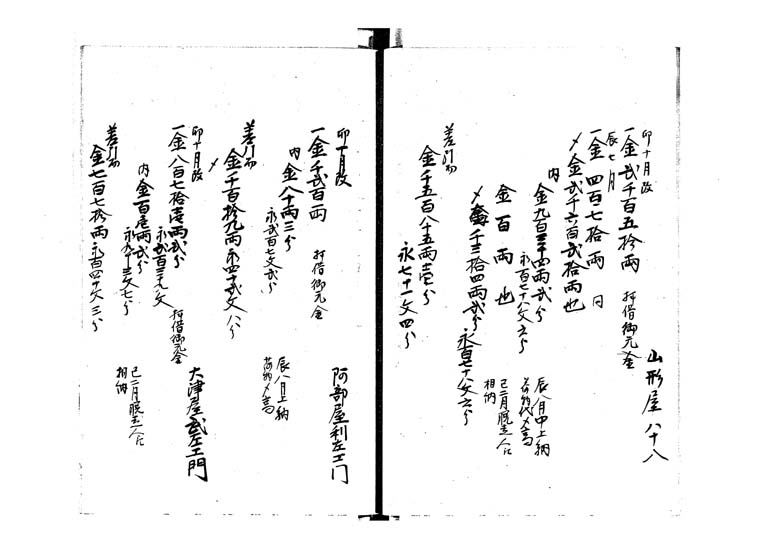 卯十月改
一金弐千百五拾両 拝借御元金
山形屋八十八
辰七月
一金四百七拾両 同
〆金弐千六百弐拾両也
内
金九百三十四両弐分
永百七十八文六分
辰八月中上納
荷物代〆高
金百両也
巳二月
相納
〆 千三拾四両弐分永百七十八文六分
差引而
金千五百八十五両壱分
永七十一文四分
卯十月改
一金千弐百両 拝借御元金
阿部屋利左エ门
内
金八十両三分
永弐百七文弐分
辰八月上納
荷物〆高
〆
差引而
金千百拾九両永四十弐文八分
卯十月改
一金八百七拾壱両弐分
永弐百三十九文 拝借御元金
大津屋武左エ門
内
金百壱両弐分
永九十三文七分
巳二月
相納
差引而
金七百七拾両永百四十文三分